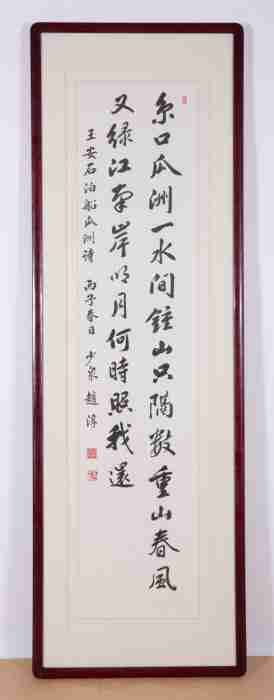 京口瓜洲一水間鐘山只隔數重山春風
又綠江南岸明月何時照我還
王安石泊船瓜洲詩 丙子春日 少泉趙淳